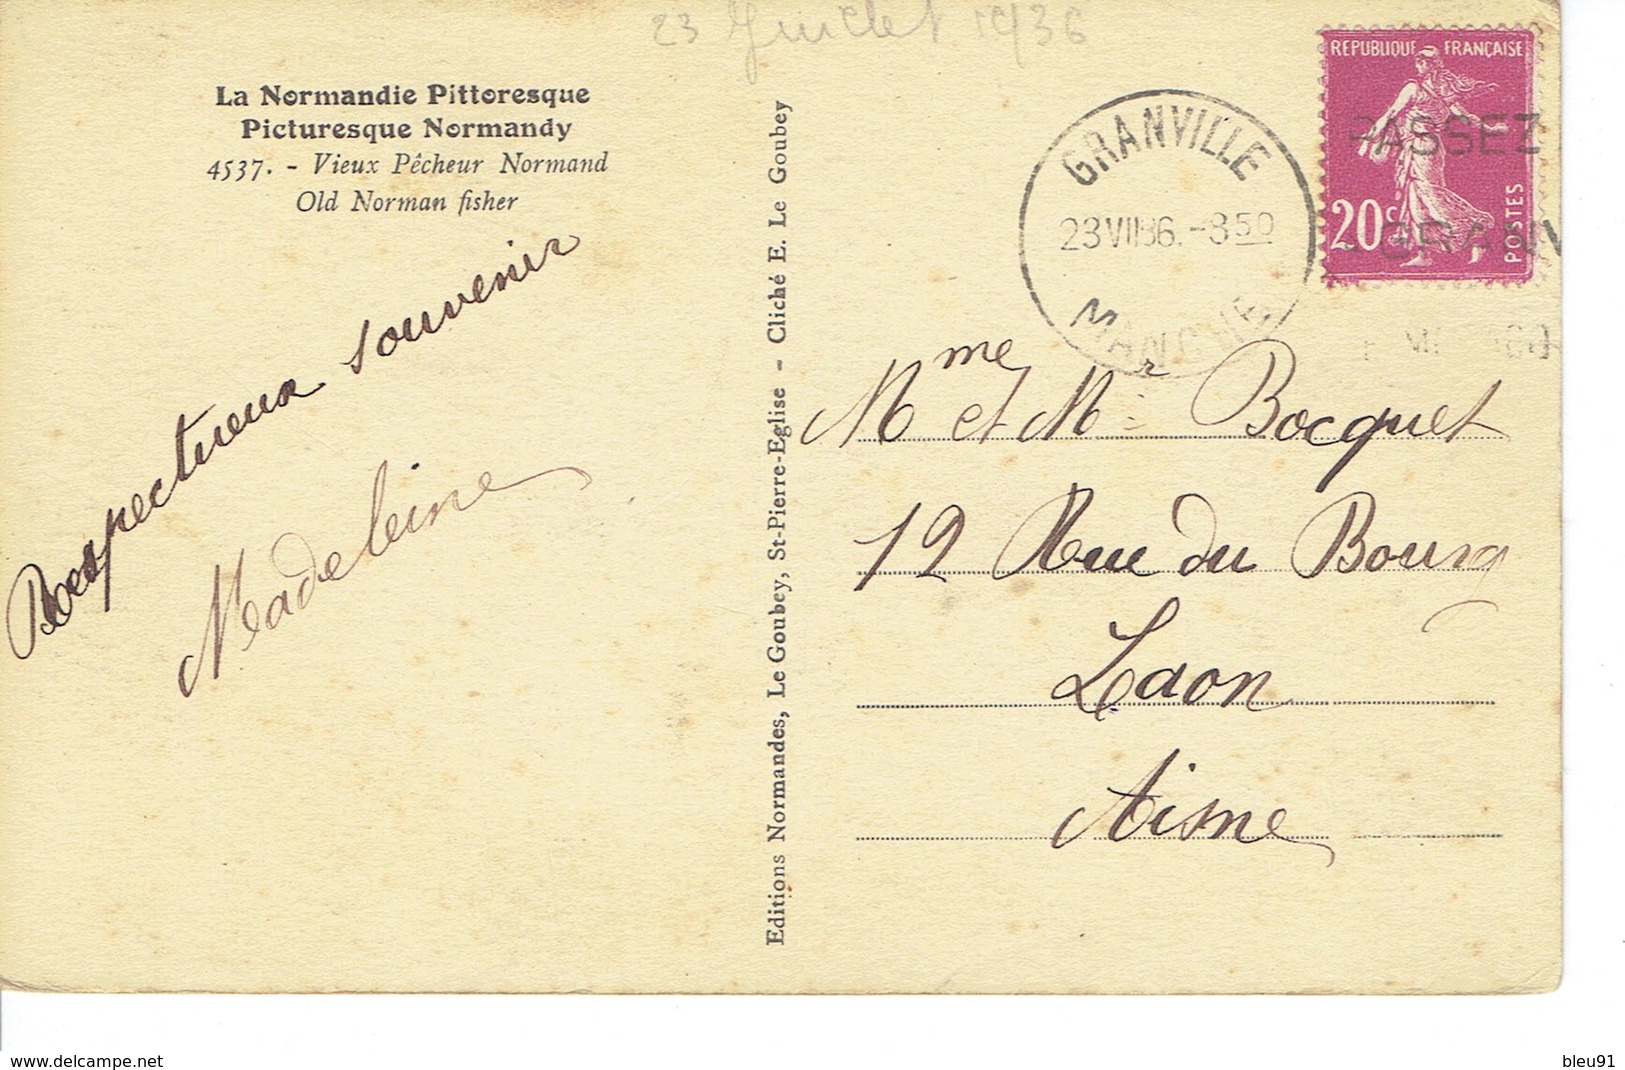 23 Juillet 1936
La Normandie Pittoresque
Picturesque Normandy
4537. - Vieux Pêcheur Normand
Old Norman fisher
Respectueux souvenir
Madeleine
Editions Normandes, Le Goubey, St-Pierre-Eglise - Cliché E. Le Goubey
GRANVILLE
23 VII 36. - 8 50
MANCHE
REPUBLIQUE FRANÇAISE
20c
POSTES
PASSEZ
GRANV
Mme et Mr Bocquet
12 Rue du Bourg
Laon
Aisne
www.delcampe.net
bleu91